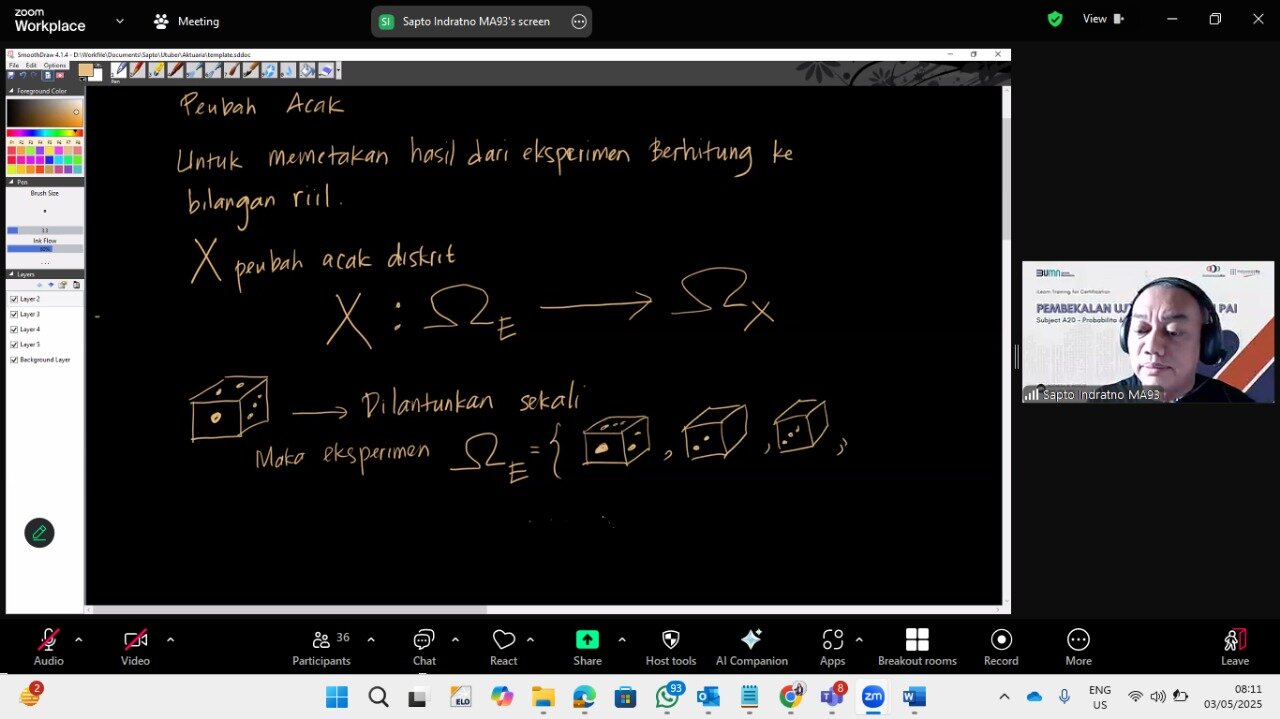 zoom
Workplace
Meeting
SI Sapto Indratno MA93's screen
View
SmoothDraw 4.1.4 - D:\Workfile\Documents\Sapto\Utuber\Aktuaria\template.sddoc
File Edit Options
Pen
Foreground Color
Pen
Brush Size
3.3
Ink Flow
Layers
Layer 2
Layer 3
Layer 4
Layer 5
Background Layer
Peubah Acak
Untuk memetakan hasil dari eksperimen Berhitung ke
bilangan riil.
X peubah acak diskrit
X : Ω_E → Ω_X
→ Dilantunkan sekali
Maka eksperimen Ω_E = { , , ,
BUMN
iLearn Training for Certification
PEMBEKALAN UJ PAI
Subject A20 - Probabilita &
Sapto Indratno MA93
Audio
Video
36
Participants
Chat
React
Share
Host tools
AI Companion
Apps
Breakout rooms
Record
More
Leave
2
ELO
93
8
zm
W
ENG
US
08:11
03/05/2025